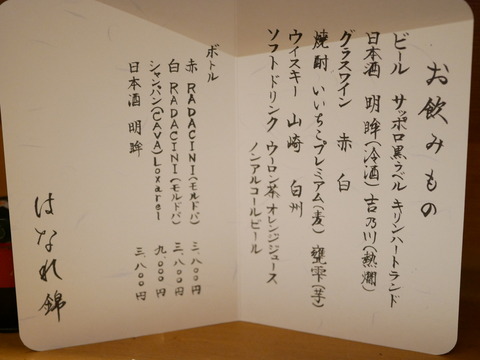 お飲みもの
ビール サッポロ黒ラベル キリンハートランド
日本酒 明眸(冷酒) 吉乃川(熱燗)
グラスワイン 赤 白
焼酎 いいちこプレミアム(麦) 甕雫(芋)
ウィスキー 山崎 白州
ソフトドリンク ウーロン茶 オレンジジュース
ノンアルコールビール
ボトル
赤 RADACINI(モルドバ) 三、八〇〇円
白 RADACINI(モルドバ) 三、八〇〇円
シャンパン(CAVA) Loxarel 九、〇〇〇円
日本酒 明眸 三、八〇〇円
はなれ錦